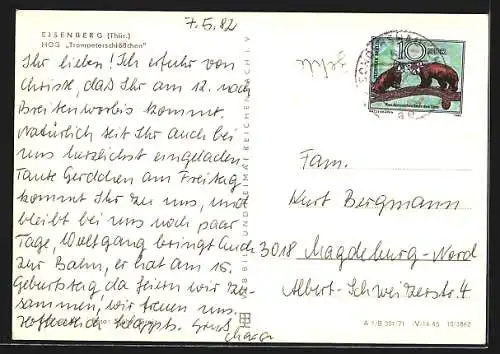 7.5.82
EISENBERG (Thür.)
HOG „Trompeterschlößchen"
Ihr lieben! Ich erfuhr von
Christe, daß Ihr am 12. nach
Breitenworbis kommt.
Natürlich seit Ihr auch bei
uns herzlichst eingeladen
Tante Gerdchen am Freitag
kommt Ihr zu uns, und
bleibt bei uns noch paar
Tage, Wolfgang bringt Euch
zur Bahn, er hat am 15.
Geburtstag da feiern wir zu-
sammen, wir freuen uns.
Hoffentlich klappts. Gruß
VEB BILD UND HEIMAT REICHENBACH I. V.
10
DDR
Fam.
Kurt Bergmann
3018 Magdeburg-Nord
Albert-Schweitzerstr. 4